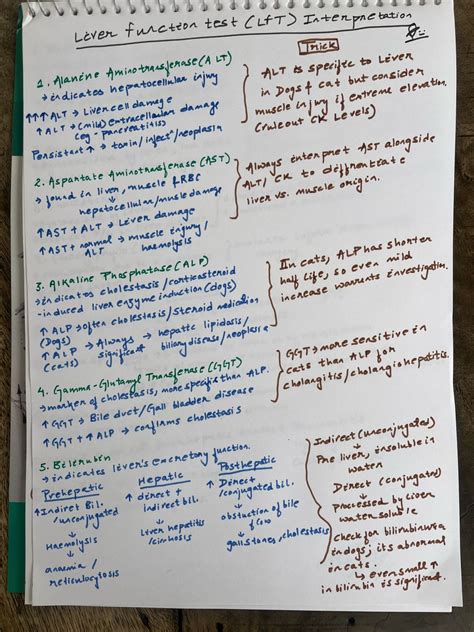 Liver function test (LFT) Interpretation
Trick
1. Alanine Aminotransferase (ALT)
→ indicates hepatocellular injury
↑↑↑ ALT → Liver cell damage
↑ ALT → (mild) extracellular damage
(eg - pancreatitis)
Persistant ↑ → toxin/infecⁿ/neoplasia
ALT is specific to Liver
in Dogs & cat but consider
muscle injury if extreme elevation.
(rule out CK levels)
2. Aspartate Aminotransferase (AST)
→ found in liver, muscle & RBC
hepatocellular/muscle damage
↑ AST + ALT → Liver damage
↑ AST + normal ALT → muscle injury/
haemolysis
Always interpret AST alongside
ALT/CK to differentiate
liver vs. muscle origin.
3. Alkaline Phosphatase (ALP)
→ indicates cholestasis/corticosteroid
- induced liver enzyme induction (dogs)
↑ ALP → often cholestasis/steroid medication
(Dogs)
↑ ALP → Always → hepatic lipidosis/
(cats) significant biliary disease/neoplasia
In cats, ALP has shorter
half life, so even mild
increase warrants investigation.
4. Gamma-Glutamyl Transferase (GGT)
→ marker of cholestasis, more specific than ALP.
↑ GGT → Bile duct/Gall bladder disease
↑ GGT + ↑ ALP → confirms cholestasis
GGT → more sensitive in
cats than ALP for
cholangitis/cholangiohepatitis.
5. Bilirubin
→ indicates liver's excretory function.
Prehepatic
↑ Indirect Bil.
/unconjugated
↓
Haemolysis
↓
anaemia/
reticulocytosis
Hepatic
↑ direct +
indirect bil.
↓
Liver hepatitis
/cirrhosis
Posthepatic
↑ Direct
/conjugated bil.
↓
obstruction of bile
flow
↓
gall stones, cholestasis
Indirect (unconjugated)
↳ Pre liver, insoluble in
water
Direct (conjugated)
↳ Processed by liver
water soluble
Check for bilirubinuria
in dogs; its abnormal
in cats.
↳ even small ↑
in bilirubin is significant.